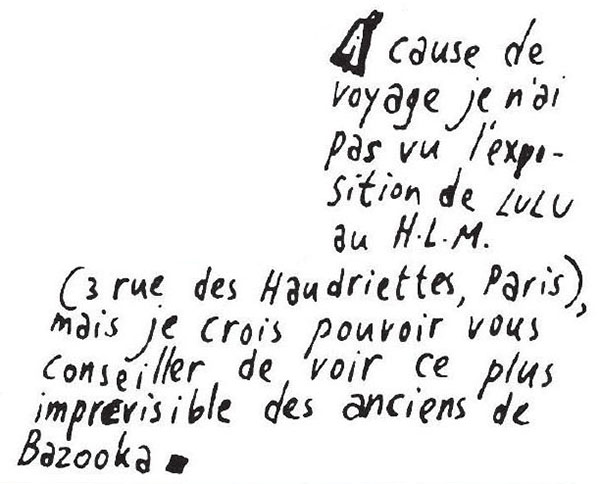 À cause de
voyage je n'ai
pas vu l'expo-
sition de LULU
au H.L.M.
(3 rue des Haudriettes, Paris),
mais je crois pouvoir vous
conseiller de voir ce plus
imprévisible des anciens de
Bazooka.